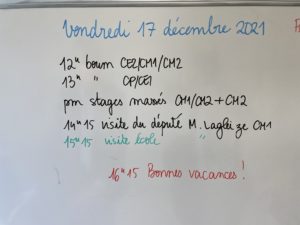 Vendredi 17 décembre 2021
12h boum CE2/CM1/CM2
13h " CP/CE1
pm stages massés CM1/CM2 + CM2
14h15 visite du député M. Lagleize CM1
15h15 visite école "
16h15 Bonnes vacances !